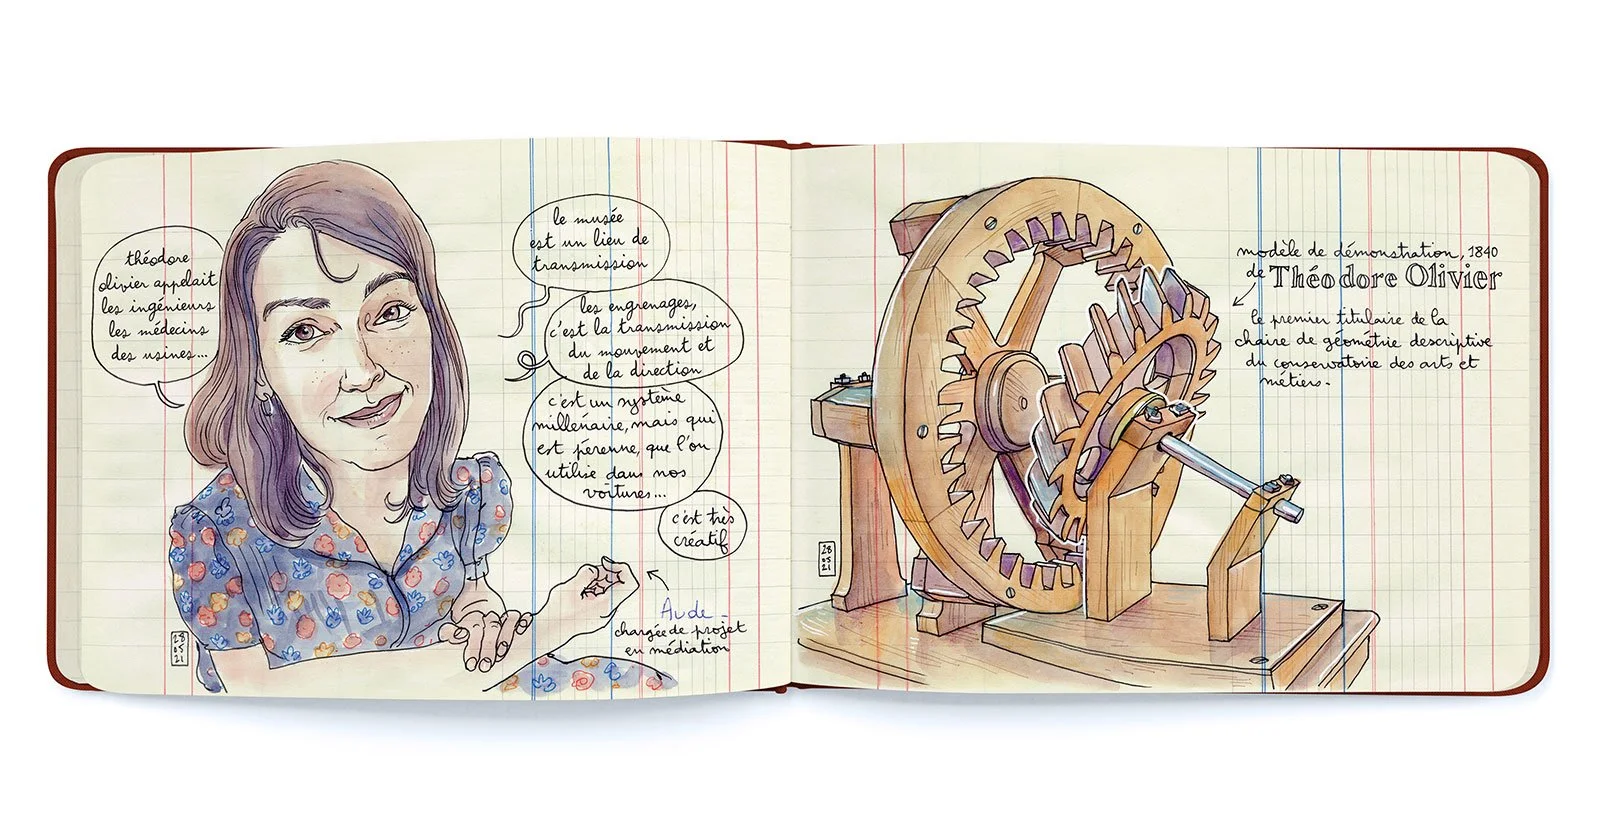 théodore
olivier appelait
les ingénieurs
les médecins
des usines...
le musée
est un lieu de
transmission
les engrenages,
c'est la transmission
du mouvement et
de la direction
c'est un système
millénaire, mais qui
est pérenne, que l'on
utilise dans nos
voitures...
c'est très
créatif
Aude -
chargée de projet
en médiation
28
05
21
modèle de démonstration, 1840
de Théodore Olivier
le premier titulaire de la
chaire de géométrie descriptive
du conservatoire des arts et
métiers.
28
05
21